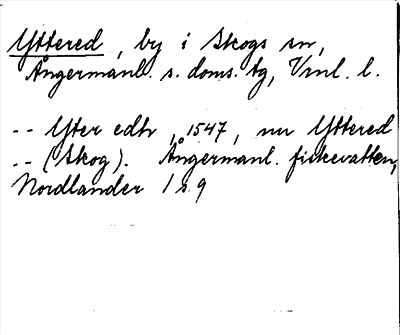 Yttered, by i Skogs sn,
Ångermanl. s. doms. tg, Vrnl. l.
-- Yter edh, 1547, nu Yttered
-- (Skog). Ångermanl. fiskevatten,
Nordlander 1 s. 9